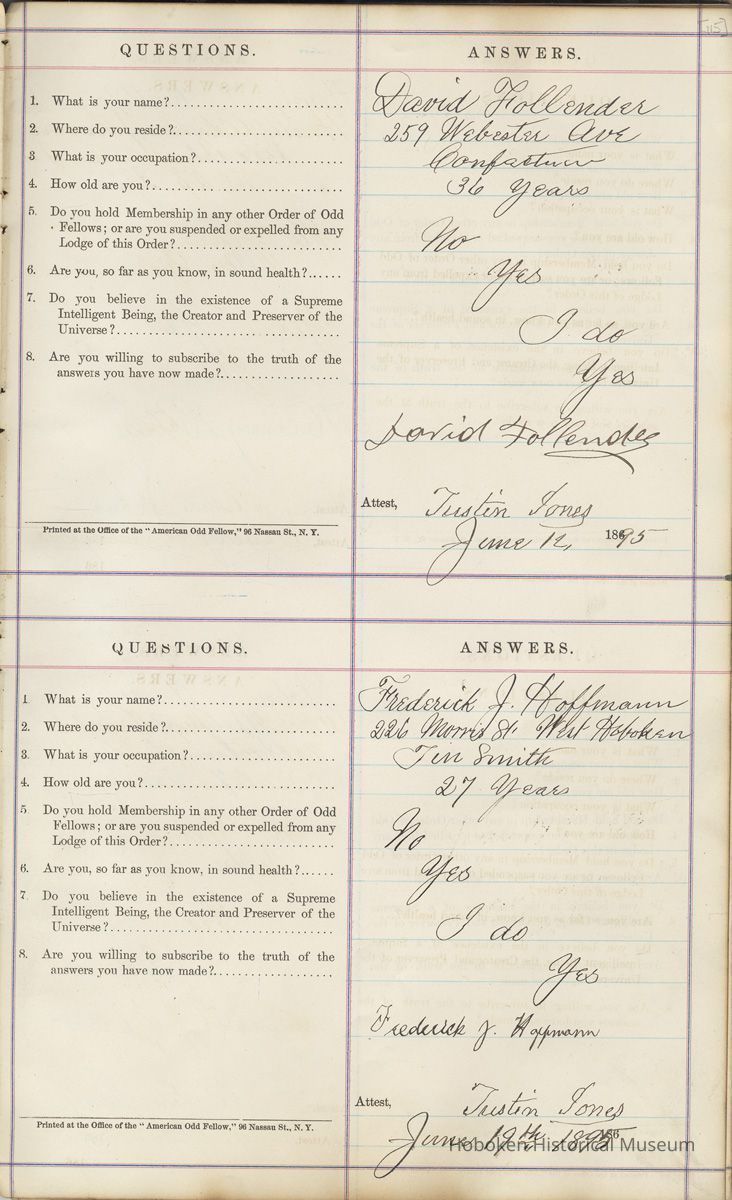 [115]
QUESTIONS. ANSWERS.
1. What is your name? David Follender
2. Where do you reside? 259 Webester Ave
3 What is your occupation?
4. How old are you? 36 Years
5. Do you hold Membership in any other Order of Odd
Fellows; or are you suspended or expelled from any
Lodge of this Order? No
6. Are you, so far as you know, in sound health? Yes
7. Do you believe in the existence of a Supreme
Intelligent Being, the Creator and Preserver of the
Universe? I do
8. Are you willing to subscribe to the truth of the
answers you have now made? Yes
David Follender
Attest, Justin Jones
Printed at the Office of the "American Odd Fellow," 96 Nassau St., N. Y.
June 12, 1895
QUESTIONS. ANSWERS.
1 What is your name? Frederick J. Hoffmann
2. Where do you reside? 226 Morris St. West Hoboken
3. What is your occupation? Tin Smith
4. How old are you? 27 Years
5. Do you hold Membership in any other Order of Odd
Fellows; or are you suspended or expelled from any
Lodge of this Order? No
6. Are you, so far as you know, in sound health? Yes
7. Do you believe in the existence of a Supreme
Intelligent Being, the Creator and Preserver of the
Universe? I do
8. Are you willing to subscribe to the truth of the
answers you have now made? Yes
Frederick J. Hoffmann
Attest, Justin Jones
Printed at the Office of the "American Odd Fellow," 96 Nassau St., N. Y.
June 19th 1895 186
Hoboken Historical Museum